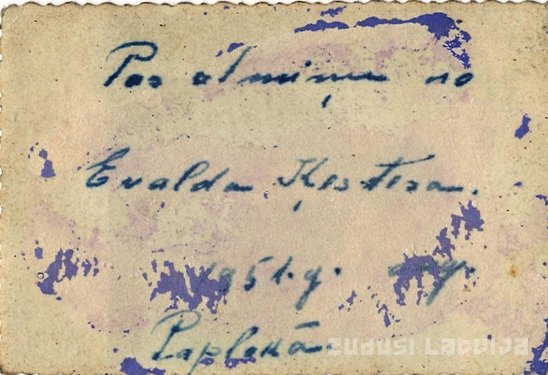 Par atmiņu no
Evalda Ķestera.
1951.g. aug.
Paplakā.
zudusi Latvija